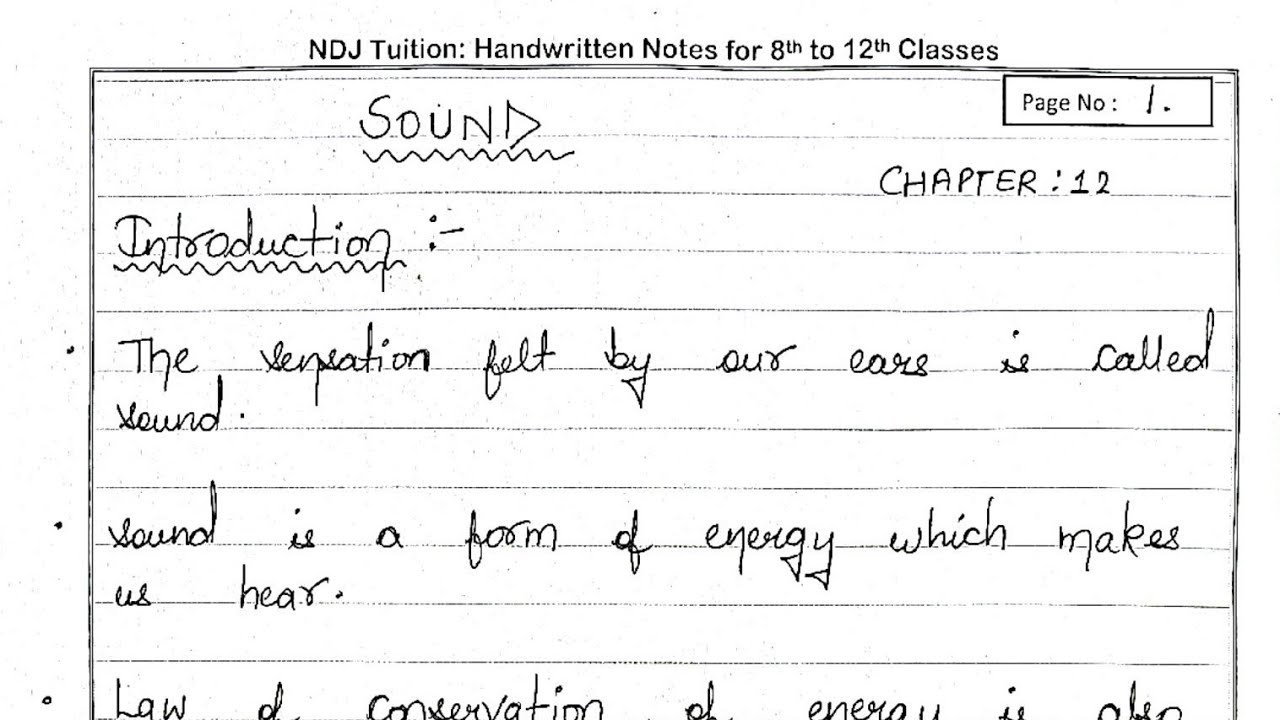 NDJ Tuition: Handwritten Notes for 8th to 12th Classes
Page No : 1.
SOUND
CHAPTER : 12
Introduction :-
The sensation felt by our ears is called
sound.
sound is a form of energy which makes
us hear.
Law of conservation of energy is also